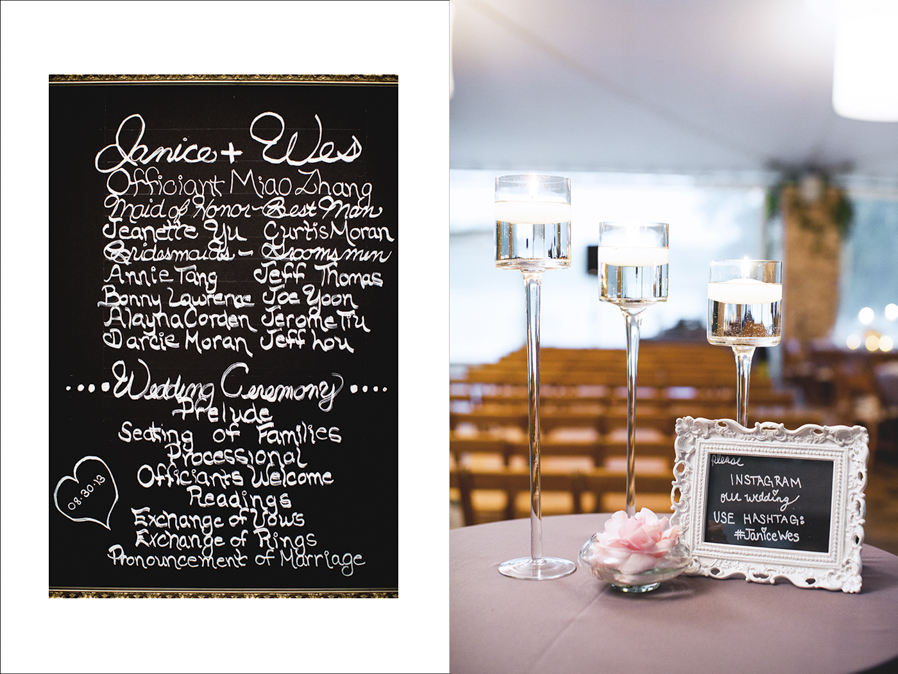 Janice + Wes
Officiant Miao Zhang
Maid of Honor - Best Man
Jeanette Yu Curtis Moran
Bridesmaids - Groomsmen
Annie Tang Jeff Thomas
Bonny Lawrence Joe Yoon
Alayna Corden Jerome Tru
Darcie Moran Jeff Lou
....Wedding Ceremony....
Prelude
Seating of Families
Processional
Officiants Welcome
Readings
Exchange of Vows
Exchange of Rings
Pronouncement of Marriage
08.30.13
please
INSTAGRAM
our wedding
USE HASHTAG:
#JaniceWes